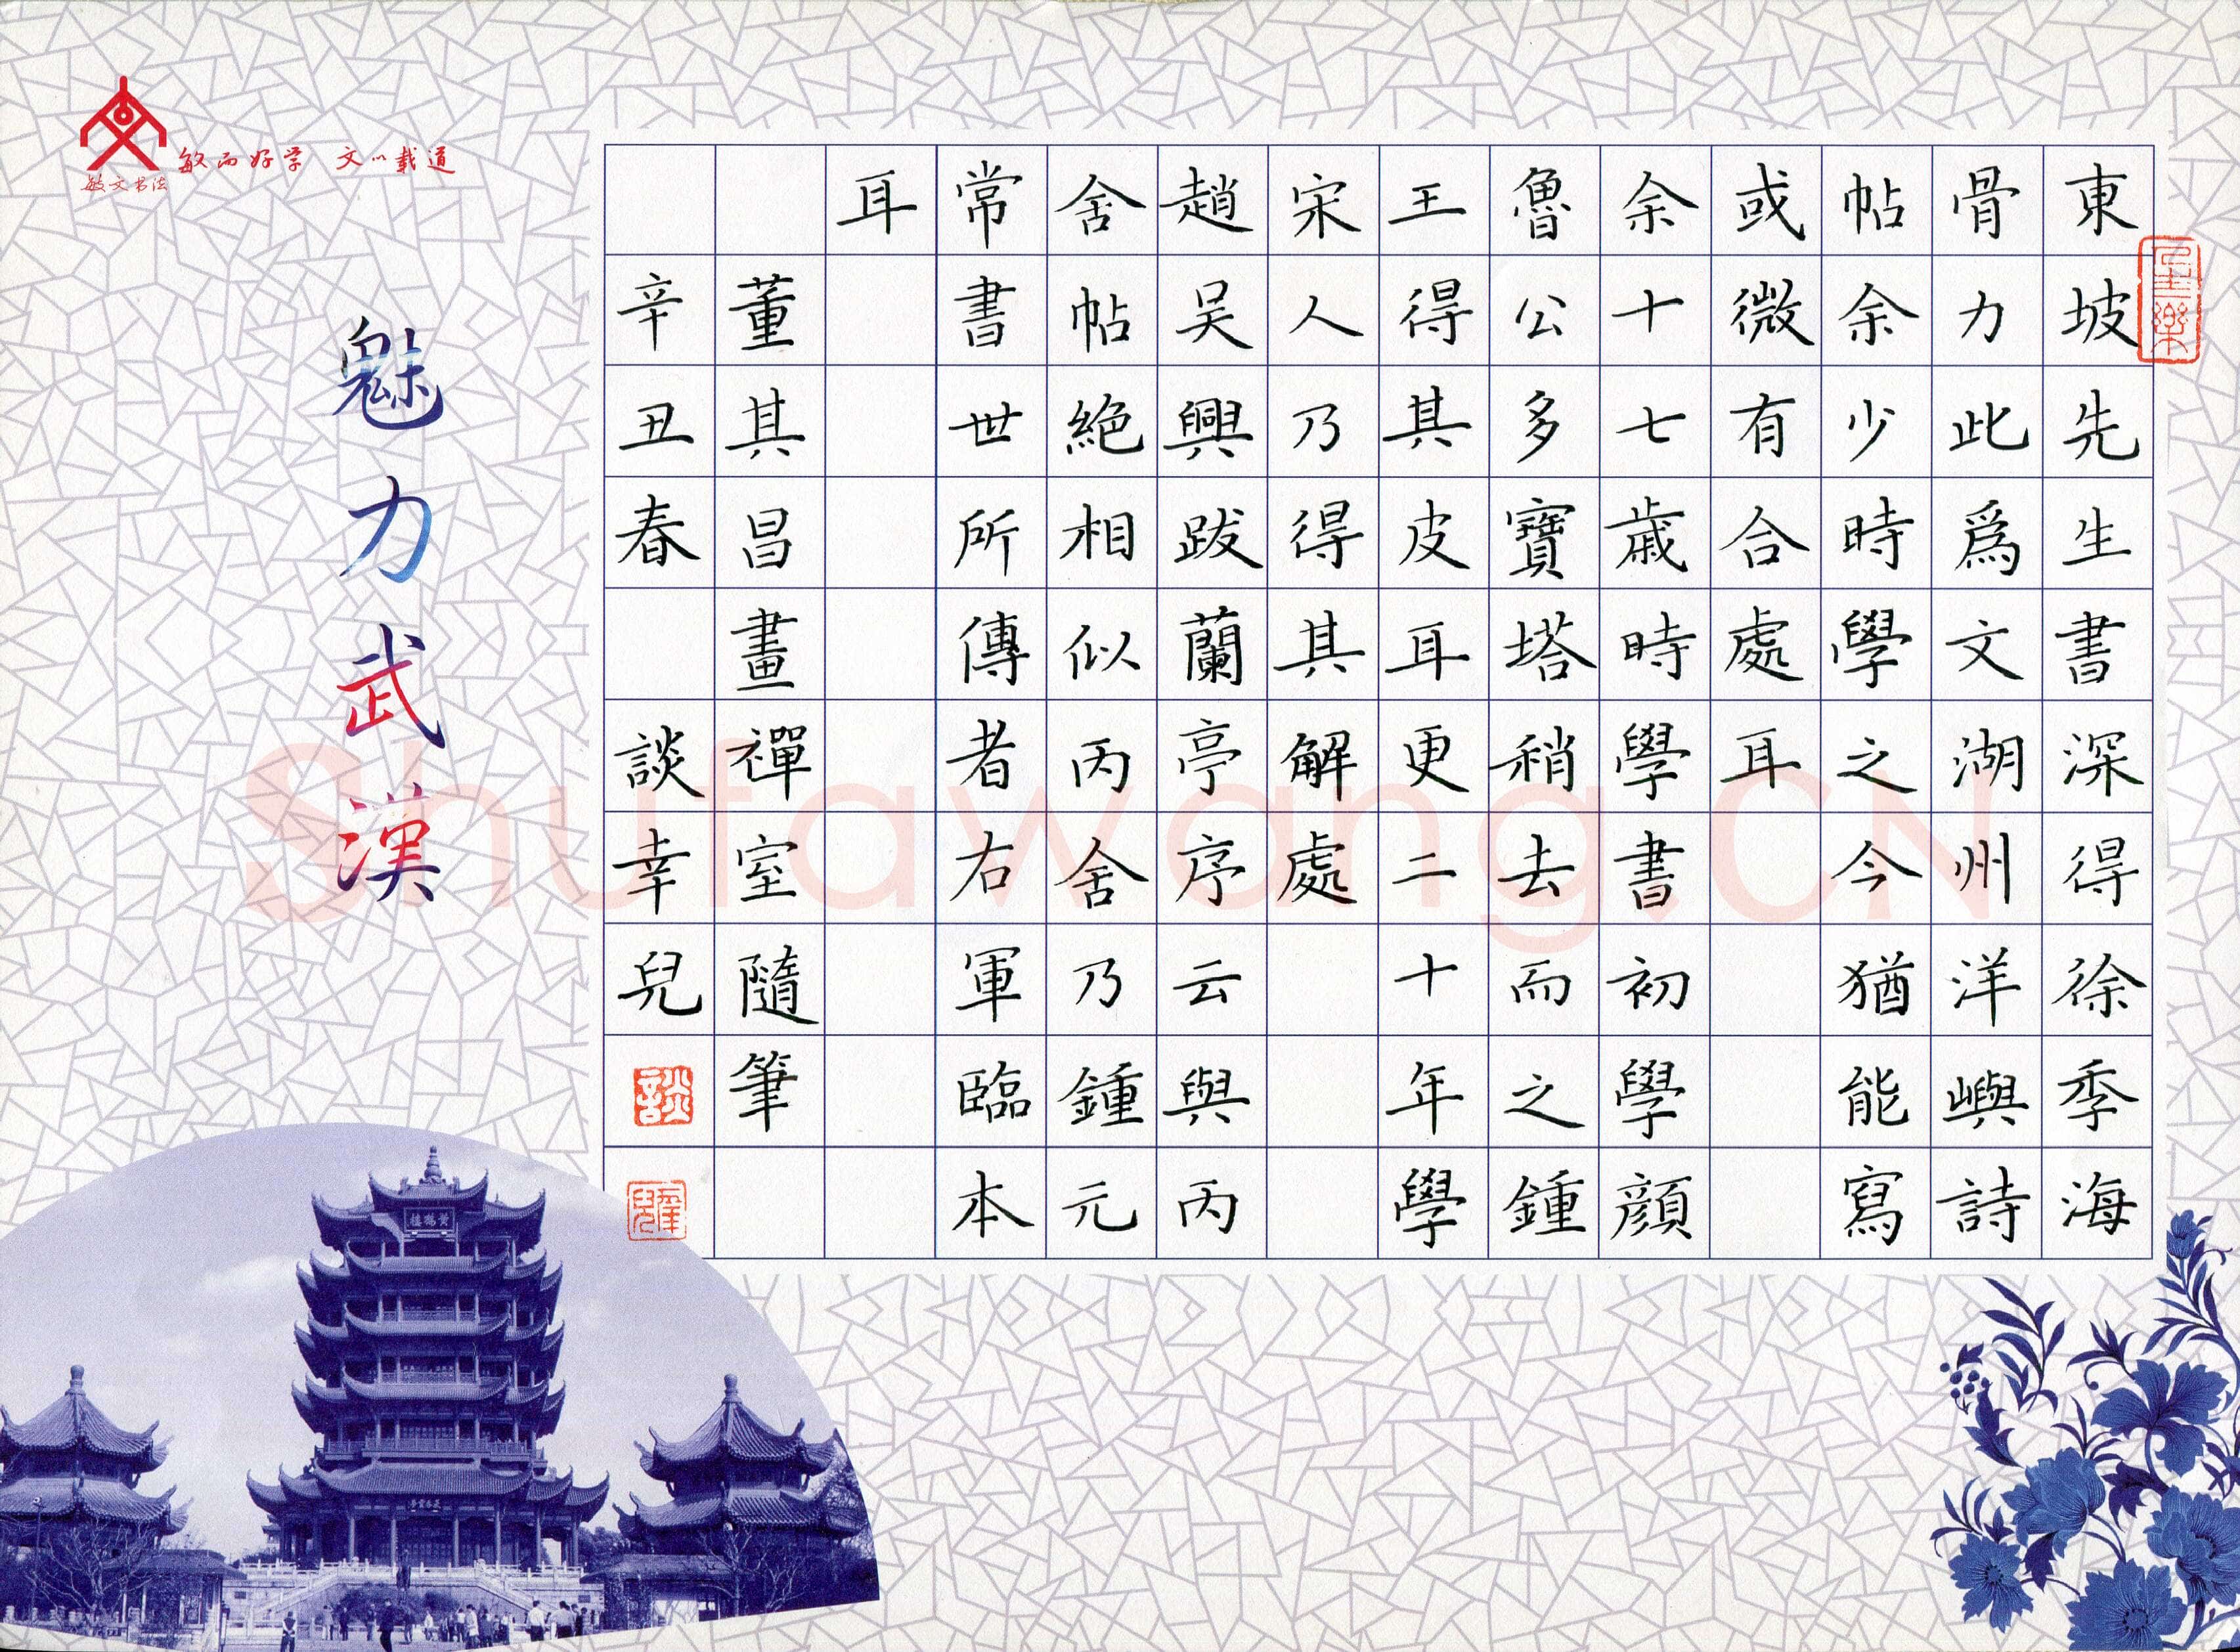 東坡先生書深得徐季海
骨力此爲文湖州洋嶼詩
帖余少時學之今猶能寫
或微有合處耳
余十七歲時學書初學顔
魯公多寶塔稍去而之鍾
王得其皮耳更二十年學
宋人乃得其解處
趙吴興跋蘭亭序云與丙
舍帖絶相似丙舍乃鍾元
常書世所傳者右軍臨本
耳
董其昌畫禪室隨筆
辛丑春 談幸兒
至樂
談
敏而好学 文以载道
敏文书法
魅力武漢
黄鶴樓
Shufawang.CN